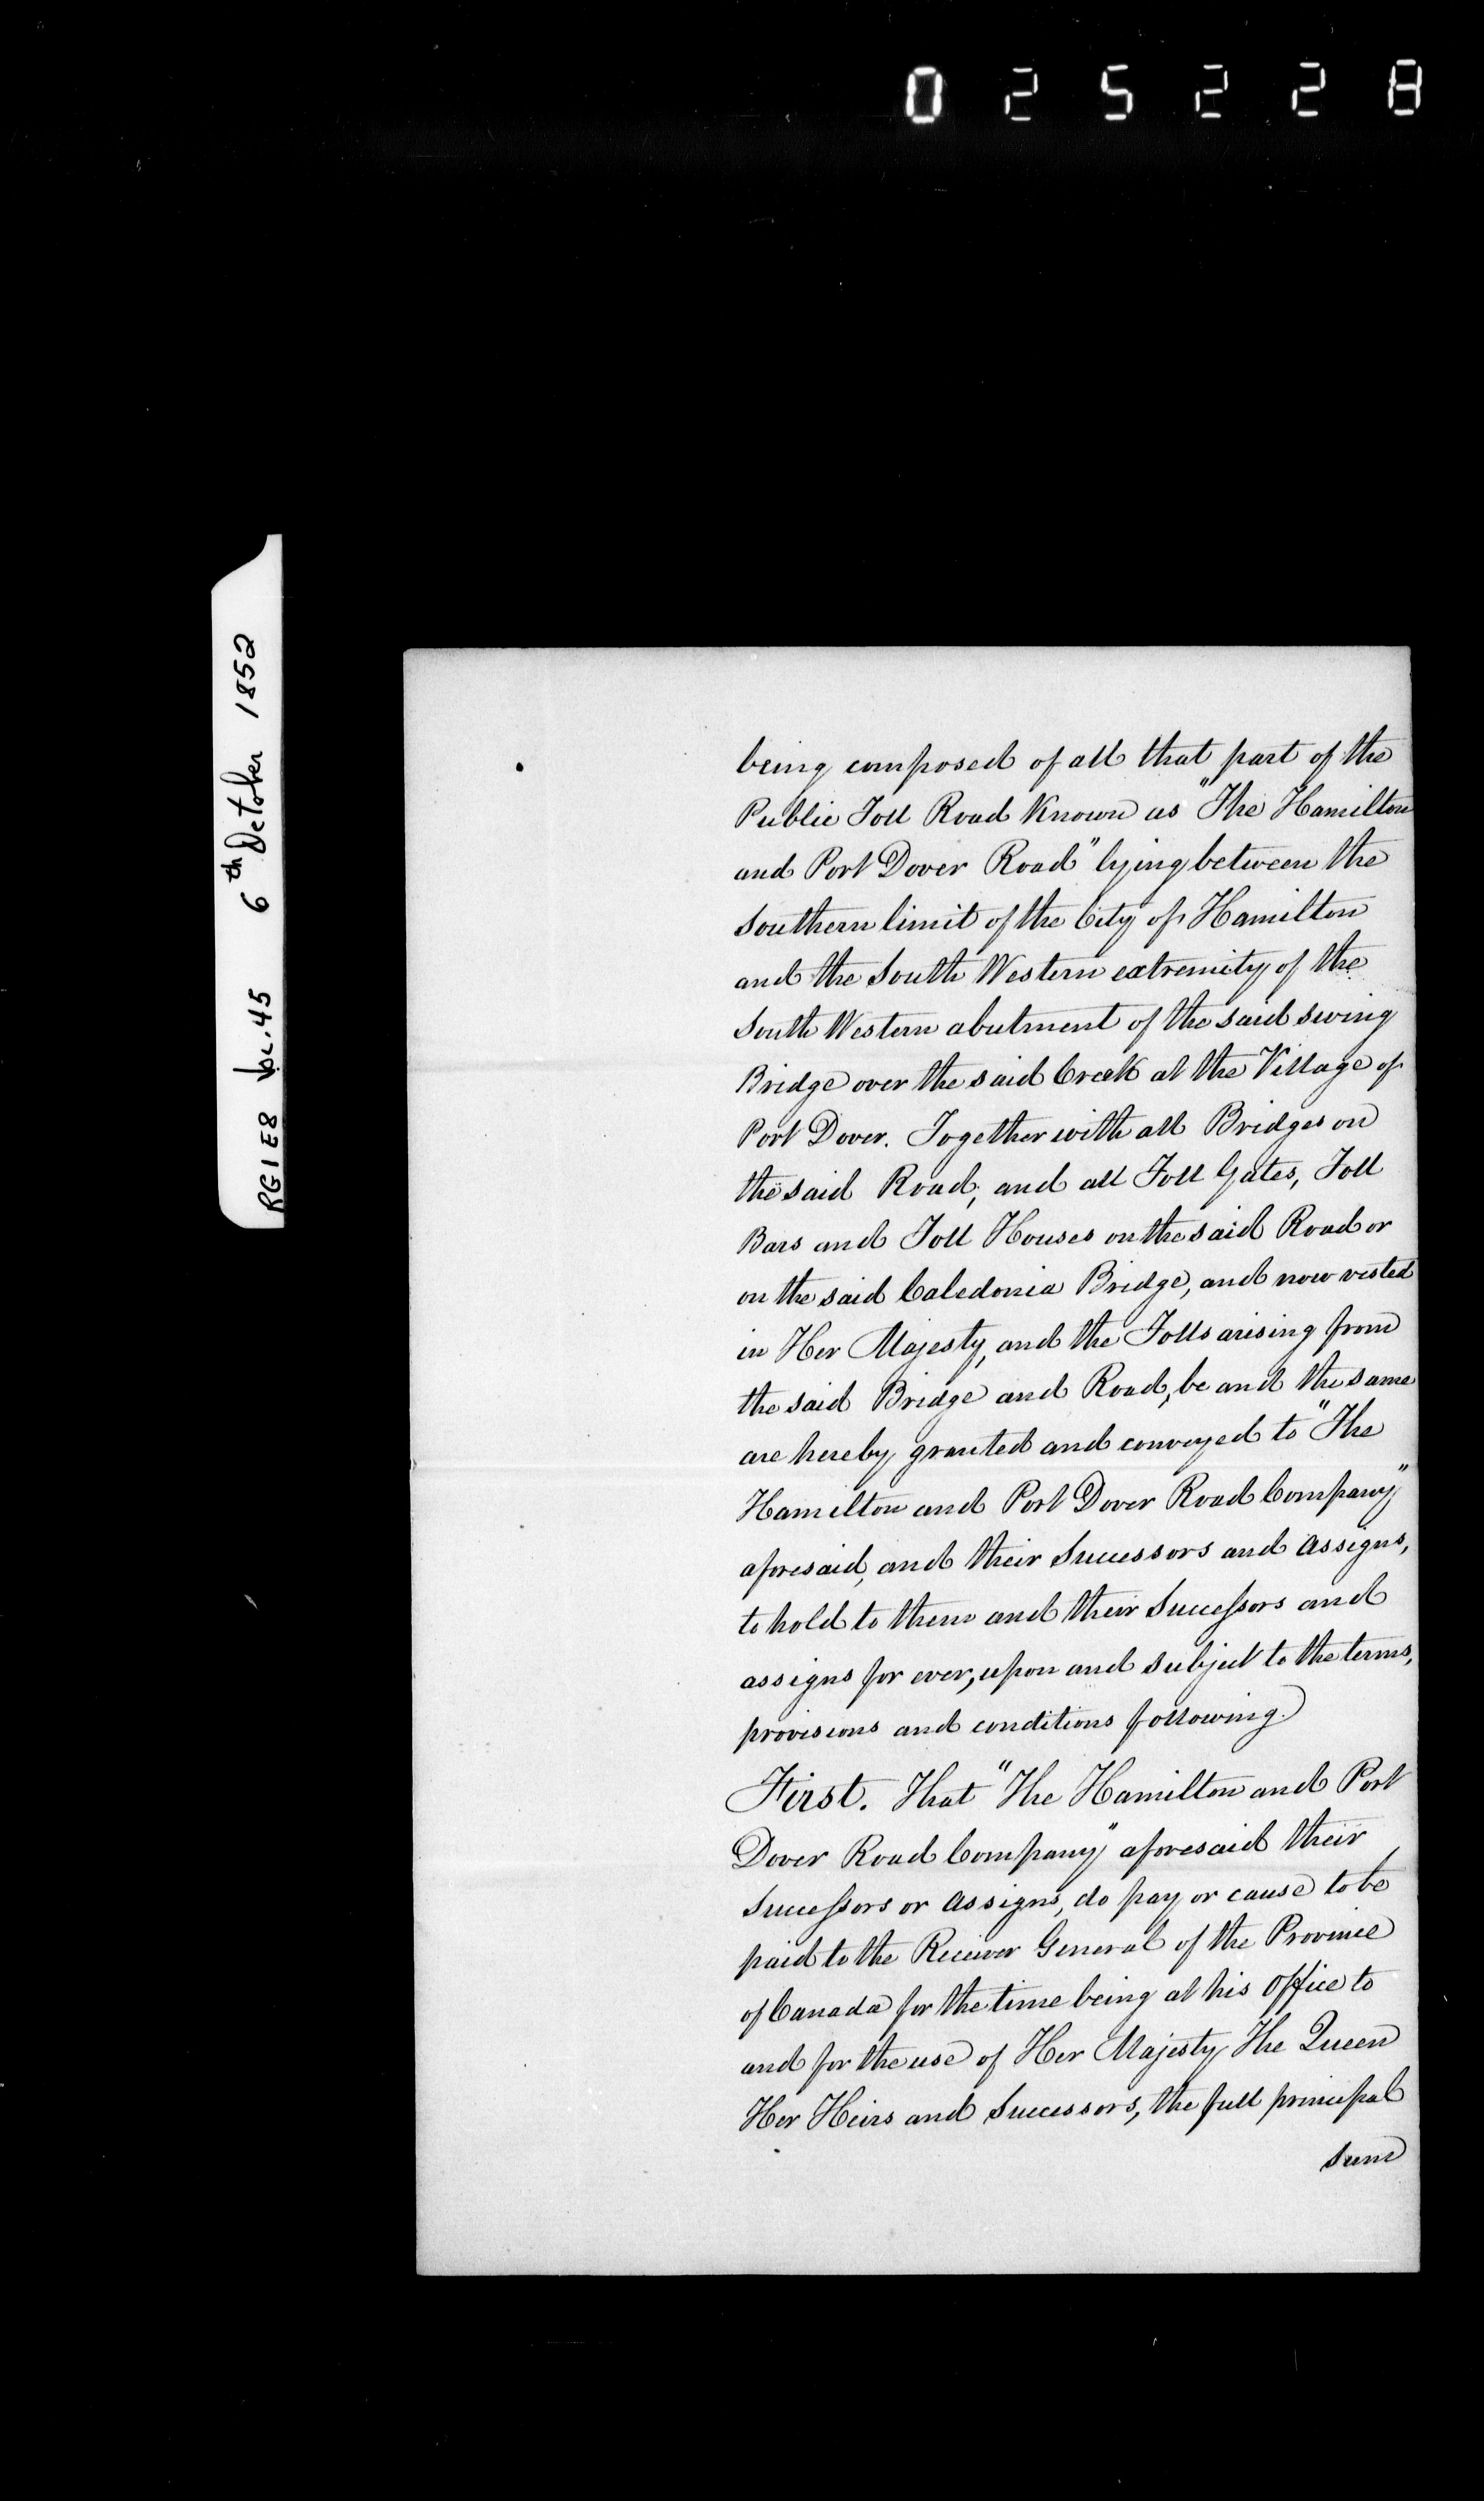 025228
RG1E8 Vol. 45 6th October 1852
being composed of all that part of the
Public Toll Road Known as "The Hamilton
and Port Dover Road" lying between the
Southern limit of the City of Hamilton
and the South Western extremity of the
South Western abutment of the said swing
Bridge over the said Creek at the Village of
Port Dover. Together with all Bridges on
the said Road, and all Toll Gates, Toll
Bars and Toll Houses on the said Road or
on the said Caledonia Bridge, and now vested
in Her Majesty, and the Tolls arising from
the said Bridge and Road, be and the same
are hereby granted and conveyed to "The
Hamilton and Port Dover Road Company"
aforesaid, and their Successors and Assigns,
to hold to them and their Successors and
assigns for ever, upon and subject to the terms,
provisions and conditions following.
First. That "The Hamilton and Port
Dover Road Company" aforesaid their
Successors or Assigns, do pay or cause to be
paid to the Receiver General of the Province
of Canada for the time being at his Office to
and for the use of Her Majesty The Queen
Her Heirs and Successors, the full principal
sum